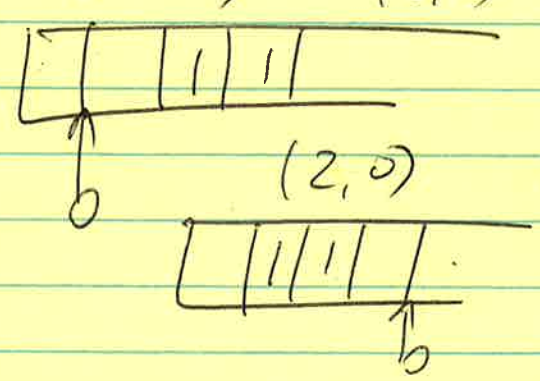 1 1
0
(2, 0)
1 1
0